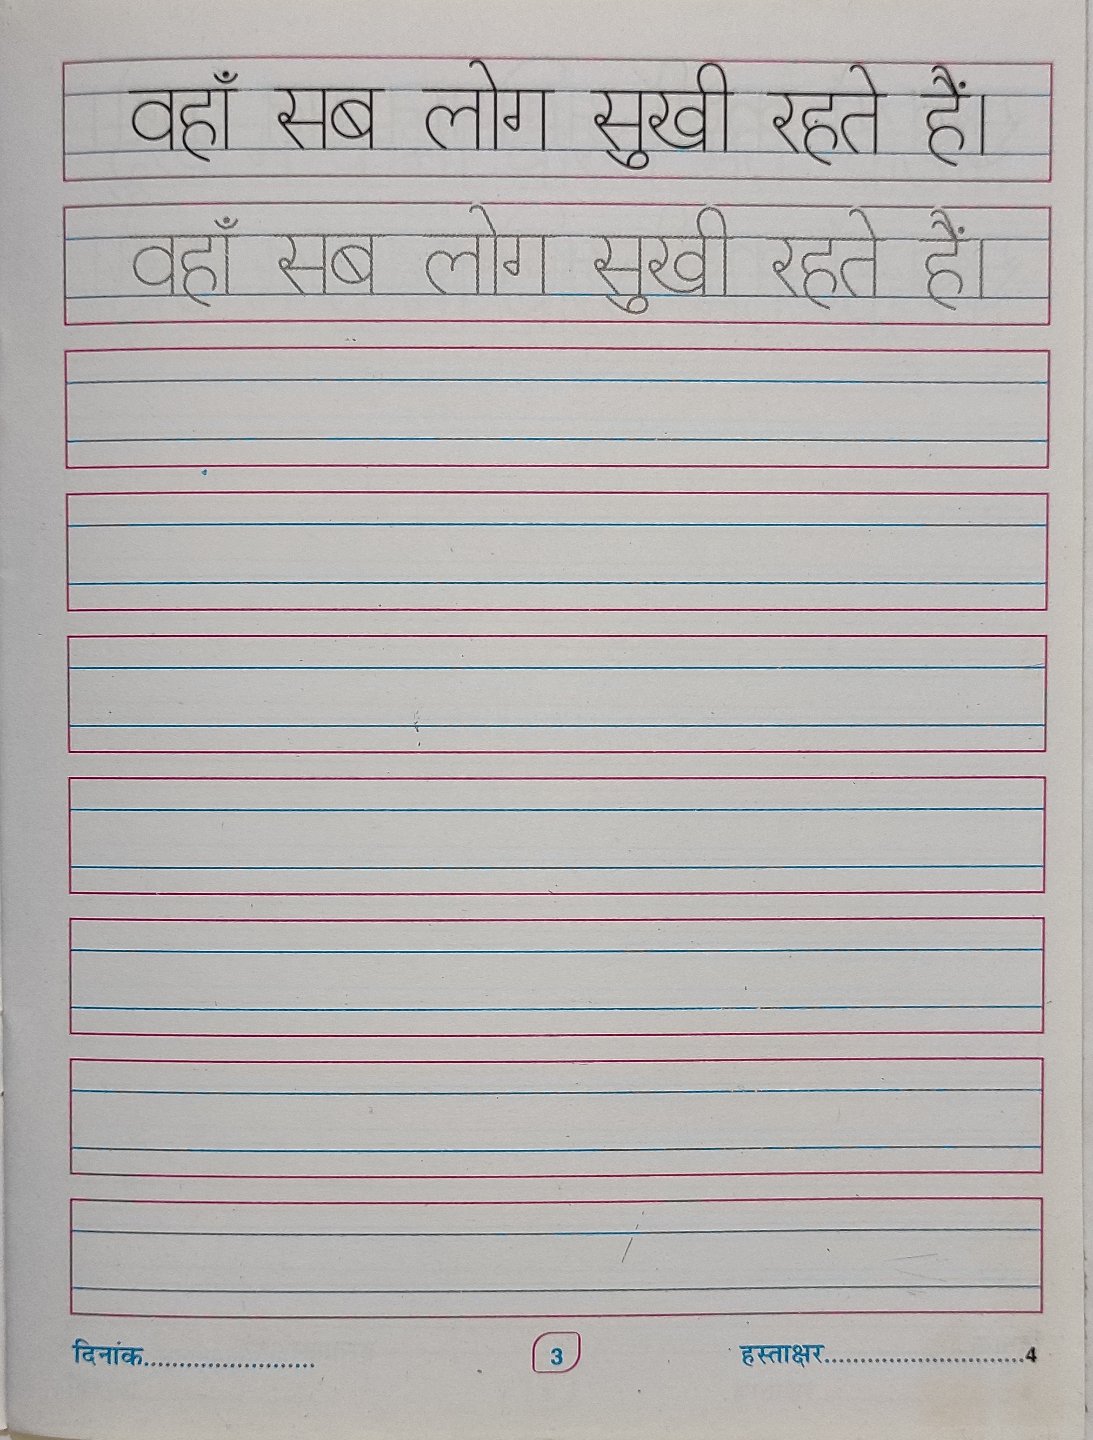 वहाँ सब लोग सुखी रहते हैं।
वहाँ सब लोग सुखी रहते हैं।
दिनांक........................ 3 हस्ताक्षर............................4